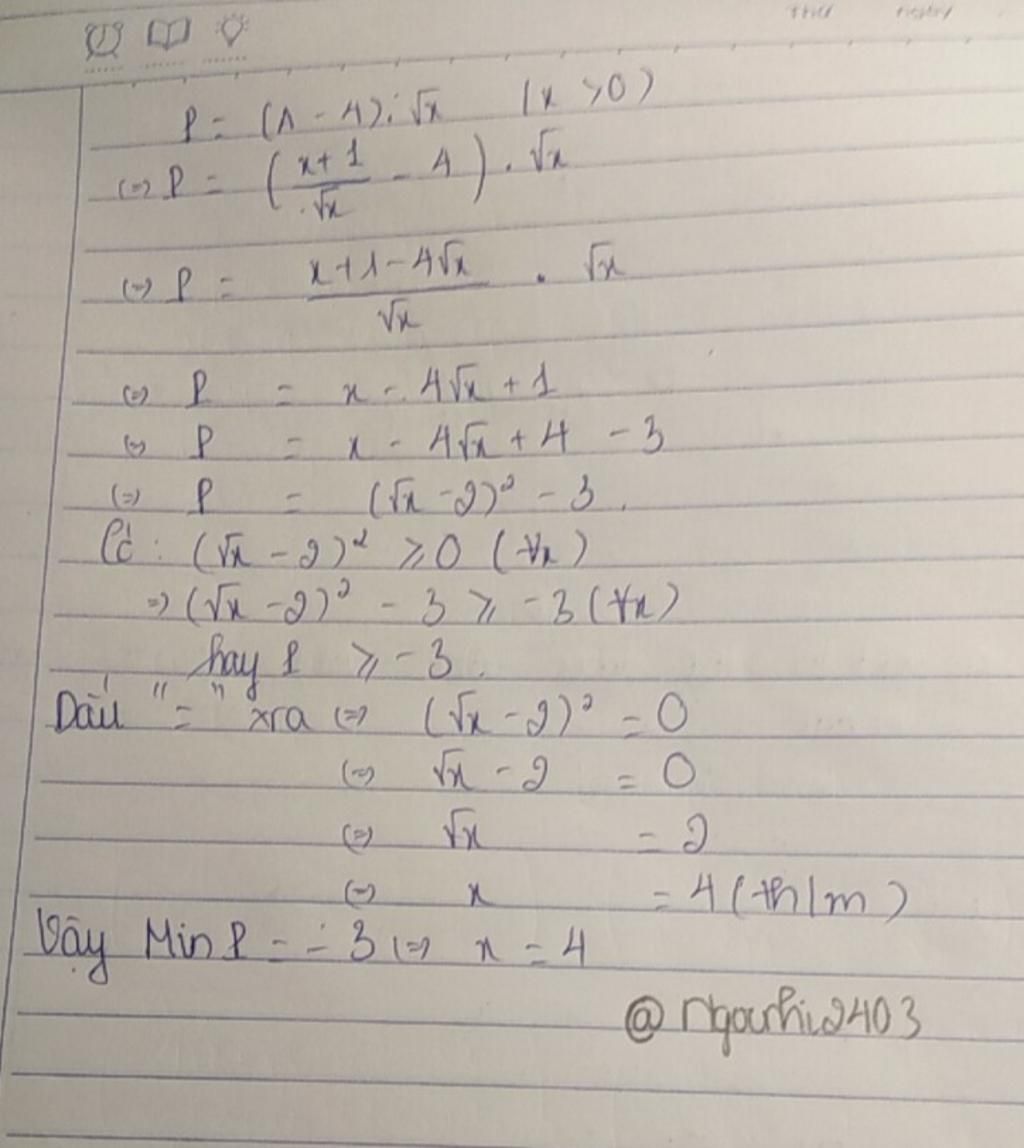 P = (A - 4).√x (x >0)
(=) P = ( (x+1)/√x - 4 ) . √x
(=) P = (x+1-4√x)/√x . √x
(=) P = x - 4√x + 1
(=) P = x - 4√x + 4 - 3
(=) P = (√x -2)² - 3.
Có : (√x - 2)² ≥ 0 (∀x)
=) (√x -2)² - 3 ≥ -3 (∀x)
hay P ≥ -3.
Dấu "=" xra (=) (√x - 2)² = 0
(=) √x - 2 = 0
(=) √x = 2
(=) x = 4 (th/m)
Vậy Min P = -3 (=) x = 4